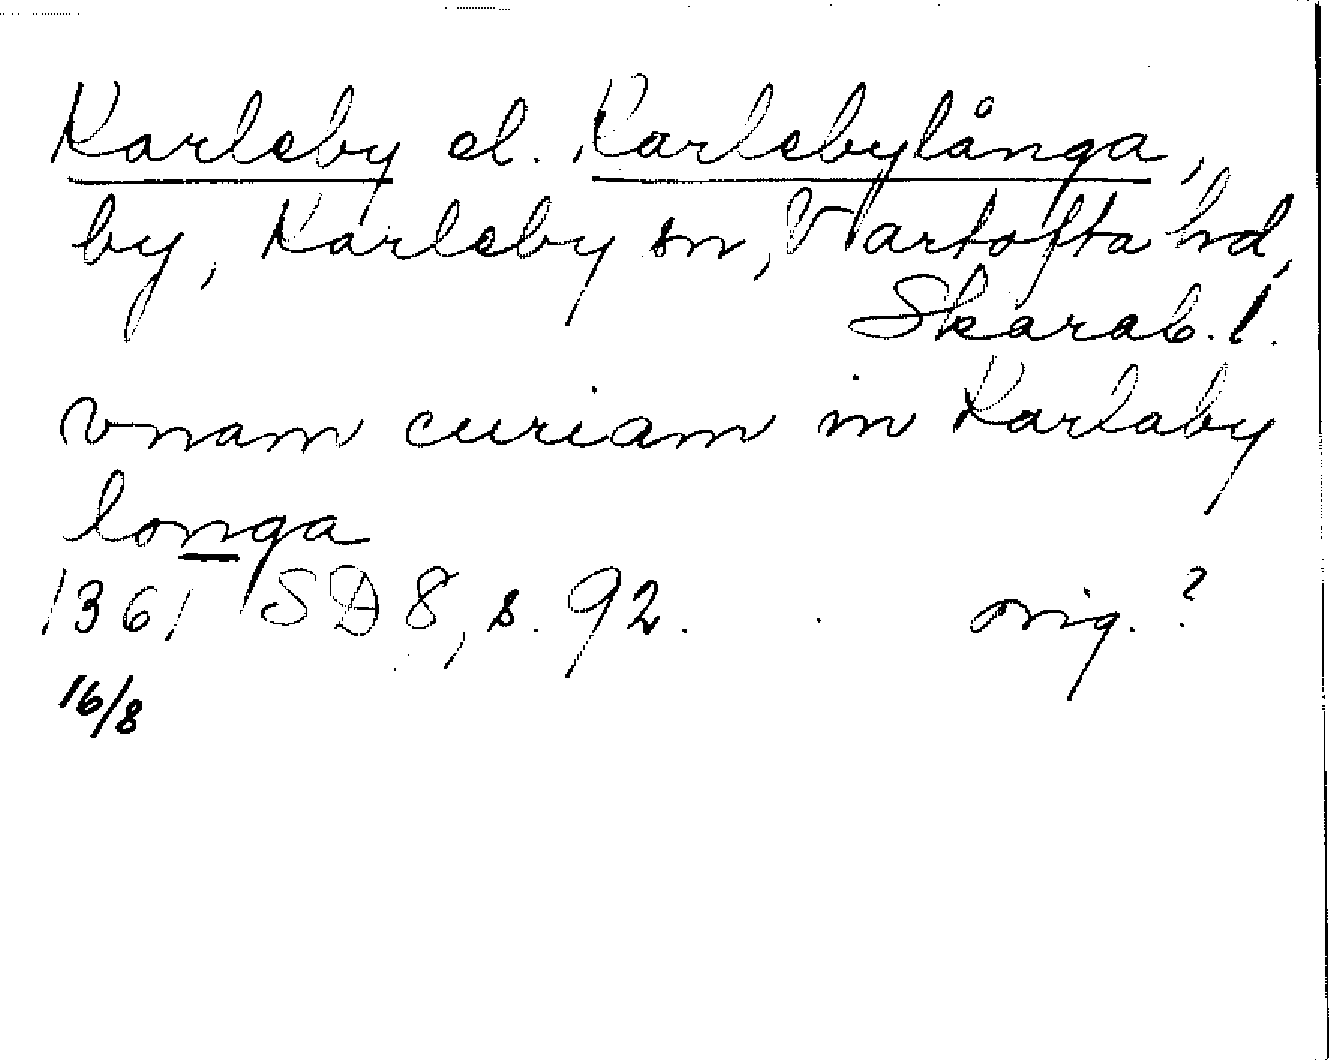 Karleby el. Karlebylånga,
by, Karleby sn, Vartofta hd,
Skarab. l.
vnam curiam in Karlaby
longa
1361 SD 8, s. 92. orig. ?
16/8